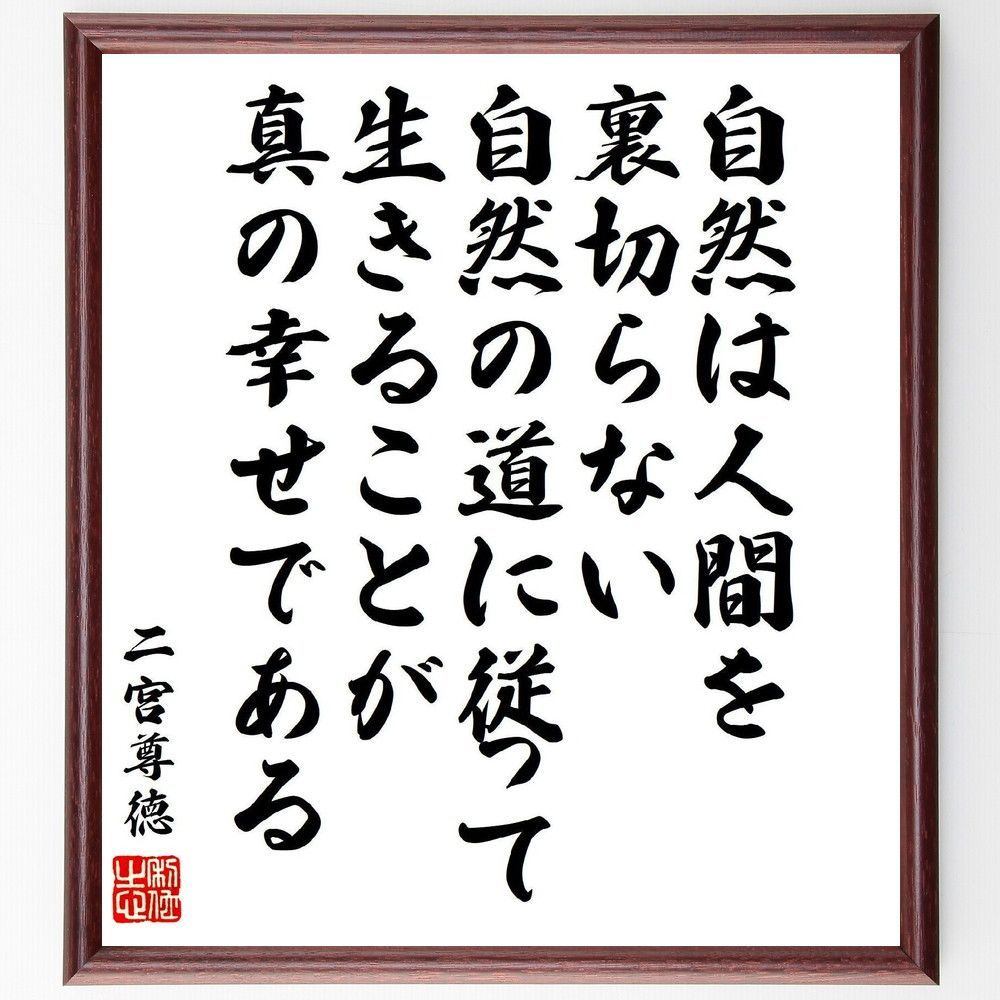 自然は人間を
裏切らない
自然の道に従って
生きることが
真の幸せである
二宮尊徳